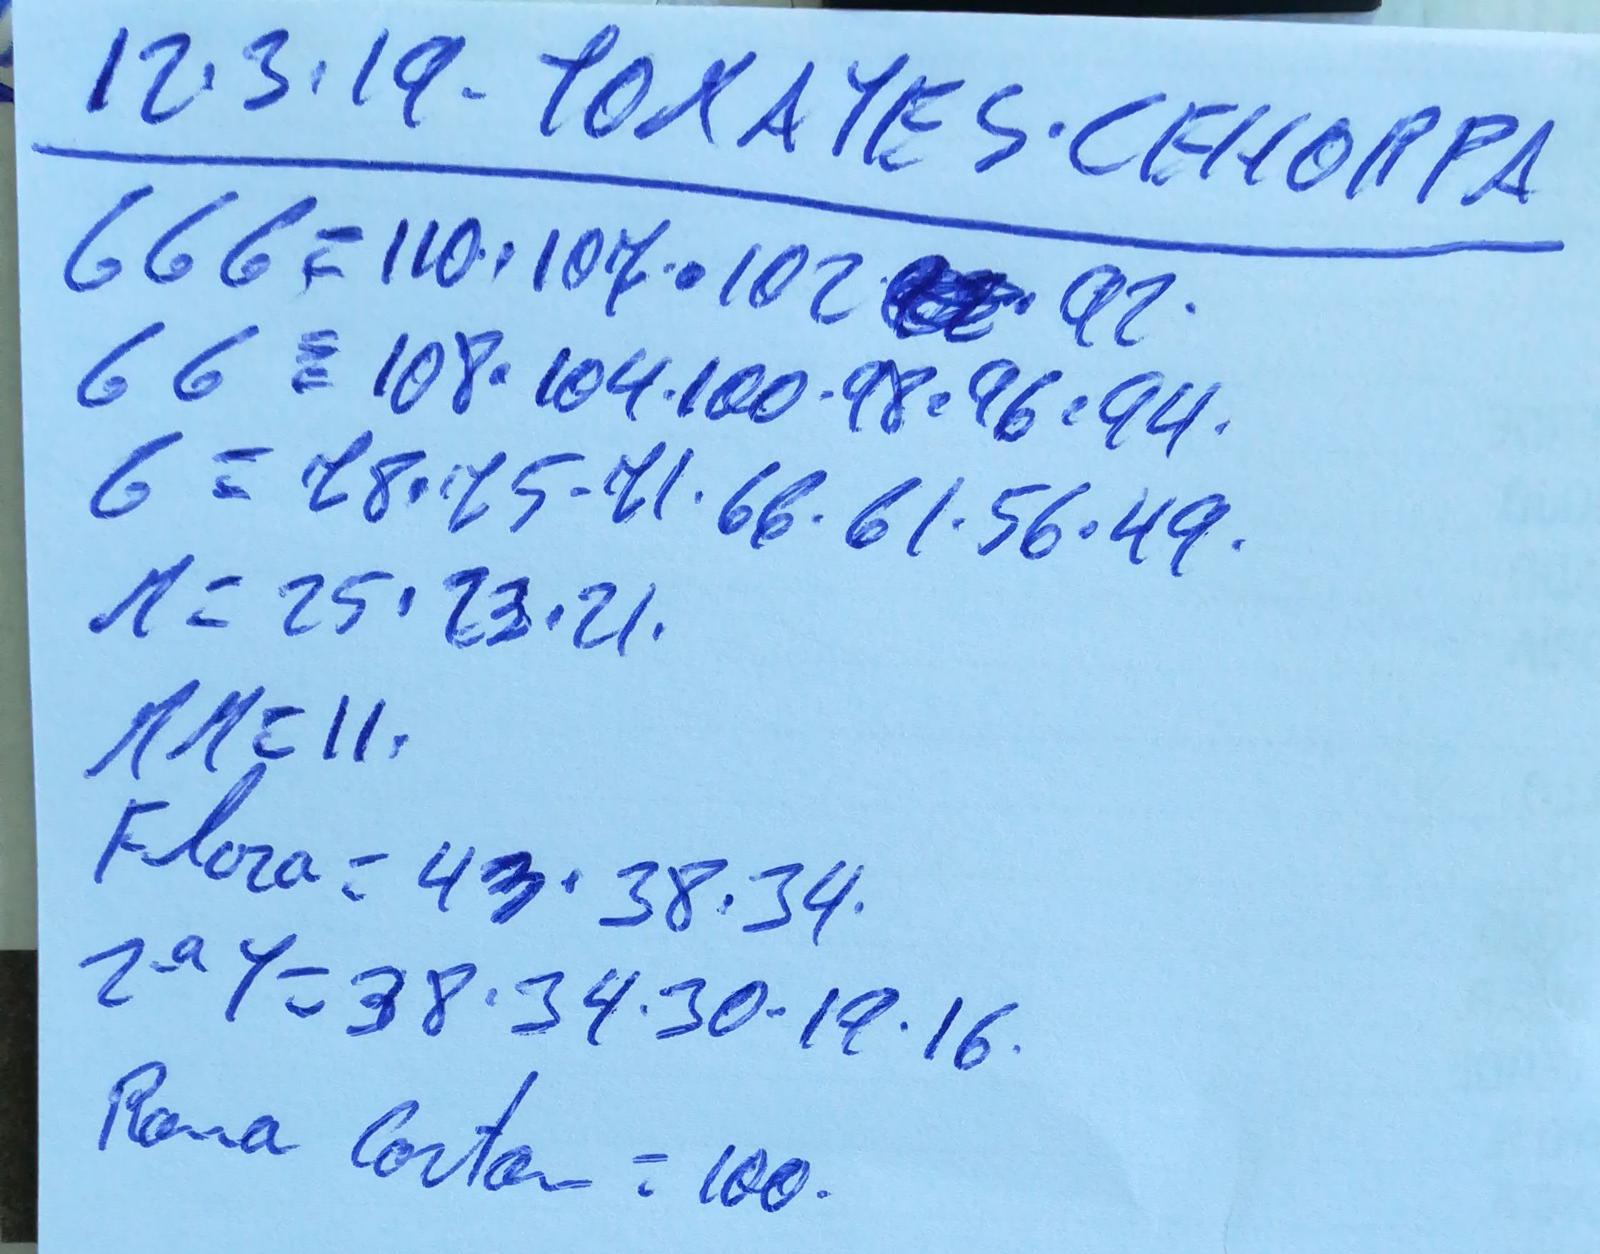 12.3.19- TOMATES.CEHORPA
GGG = 110.107.102.92.
GG = 108.104.100.98.96.94.
G = 78.75-71.66.61.56.49.
M = 25.23.21.
MM = 11.
Flora = 43.38.34.
2ª T = 38.34.30-19.16.
Rama = 100.